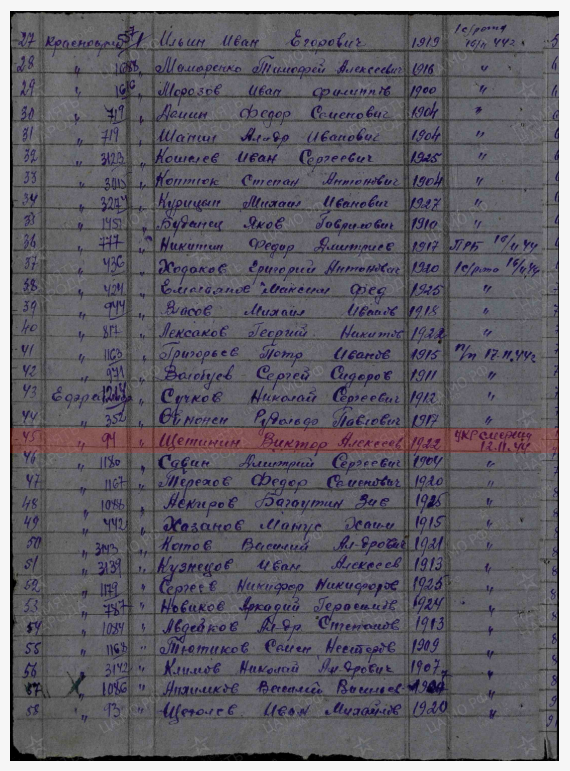 27 Красноарм 57 Ильин Иван Егорович 1919 1 с/рота 16/11 44г
28 " 1088 " Момаренко Тимофей Алексеевич 1916 "
29 " 1616 " Морозов Иван Филиппов 1900 "
30 " 719 " Федор Семенович 1904 "
31 " 719 " Шанин Ал-др Иванович 1904 "
32 " 3123 " Кошелев Иван Сергеевич 1925 "
33 " 3015 " Коптюк Степан Антонович 1904 "
34 " 3274 " Курицын Михаил Иванович 1927 "
35 " 145 " Яков Гаврилович 1910 "
36 " 777 " Никитин Федор Дмитриев 1917 ПРБ 16/11 44
37 " 436 " Ходаков Григорий Антонович 1920 1 с/рота 16/11 44
38 " 424 " Емельянов Максим Фед 1925 "
39 " 944 " Власов Михаил Иванов 1918 "
40 " 812 " Лексаков Георгий Никитов 1922 "
41 " 1163 " Григорьев Петр Иванов 1915 п/п 17.11.44г
42 " 971 " Сергей Сидоров 1911 "
43 Ефрейтор 1214 " Сучков Николай Сергеевич 1912 "
44 " 352 " Симонен Рудольф Павлович 1917 "
45 " 94 " Щетинин Виктор Алексеев 1922 УКР Смерш 12.11.44
46 " 1180 " Савин Дмитрий Сергеевич 1904 "
47 " 1167 " Терехов Федор Семенович 1920 "
48 " 1086 " Аскиров Багаутин 1925 "
49 " 442 " Хазанов Мангус Хаим 1915 "
50 " 3143 " Котов Василий Ал-дрович 1921 "
51 " 3139 " Кузнецов Иван Алексеев 1913 "
52 " 1179 " Сергеев Никифор Никифоров 1925 "
53 " 787 " Новиков Аркадий Герасимов 1924 "
54 " 1084 " Авдейков Ал-др Степанов 1913 "
55 " 1168 " Тютиков Семен Несторов 1909 "
56 " 3142 " Климов Николай Ал-дрович 1907 "
57 " 1086 " Василий Васильев "
58 " 93 " Щеголев Иван Михайлов 1920 "